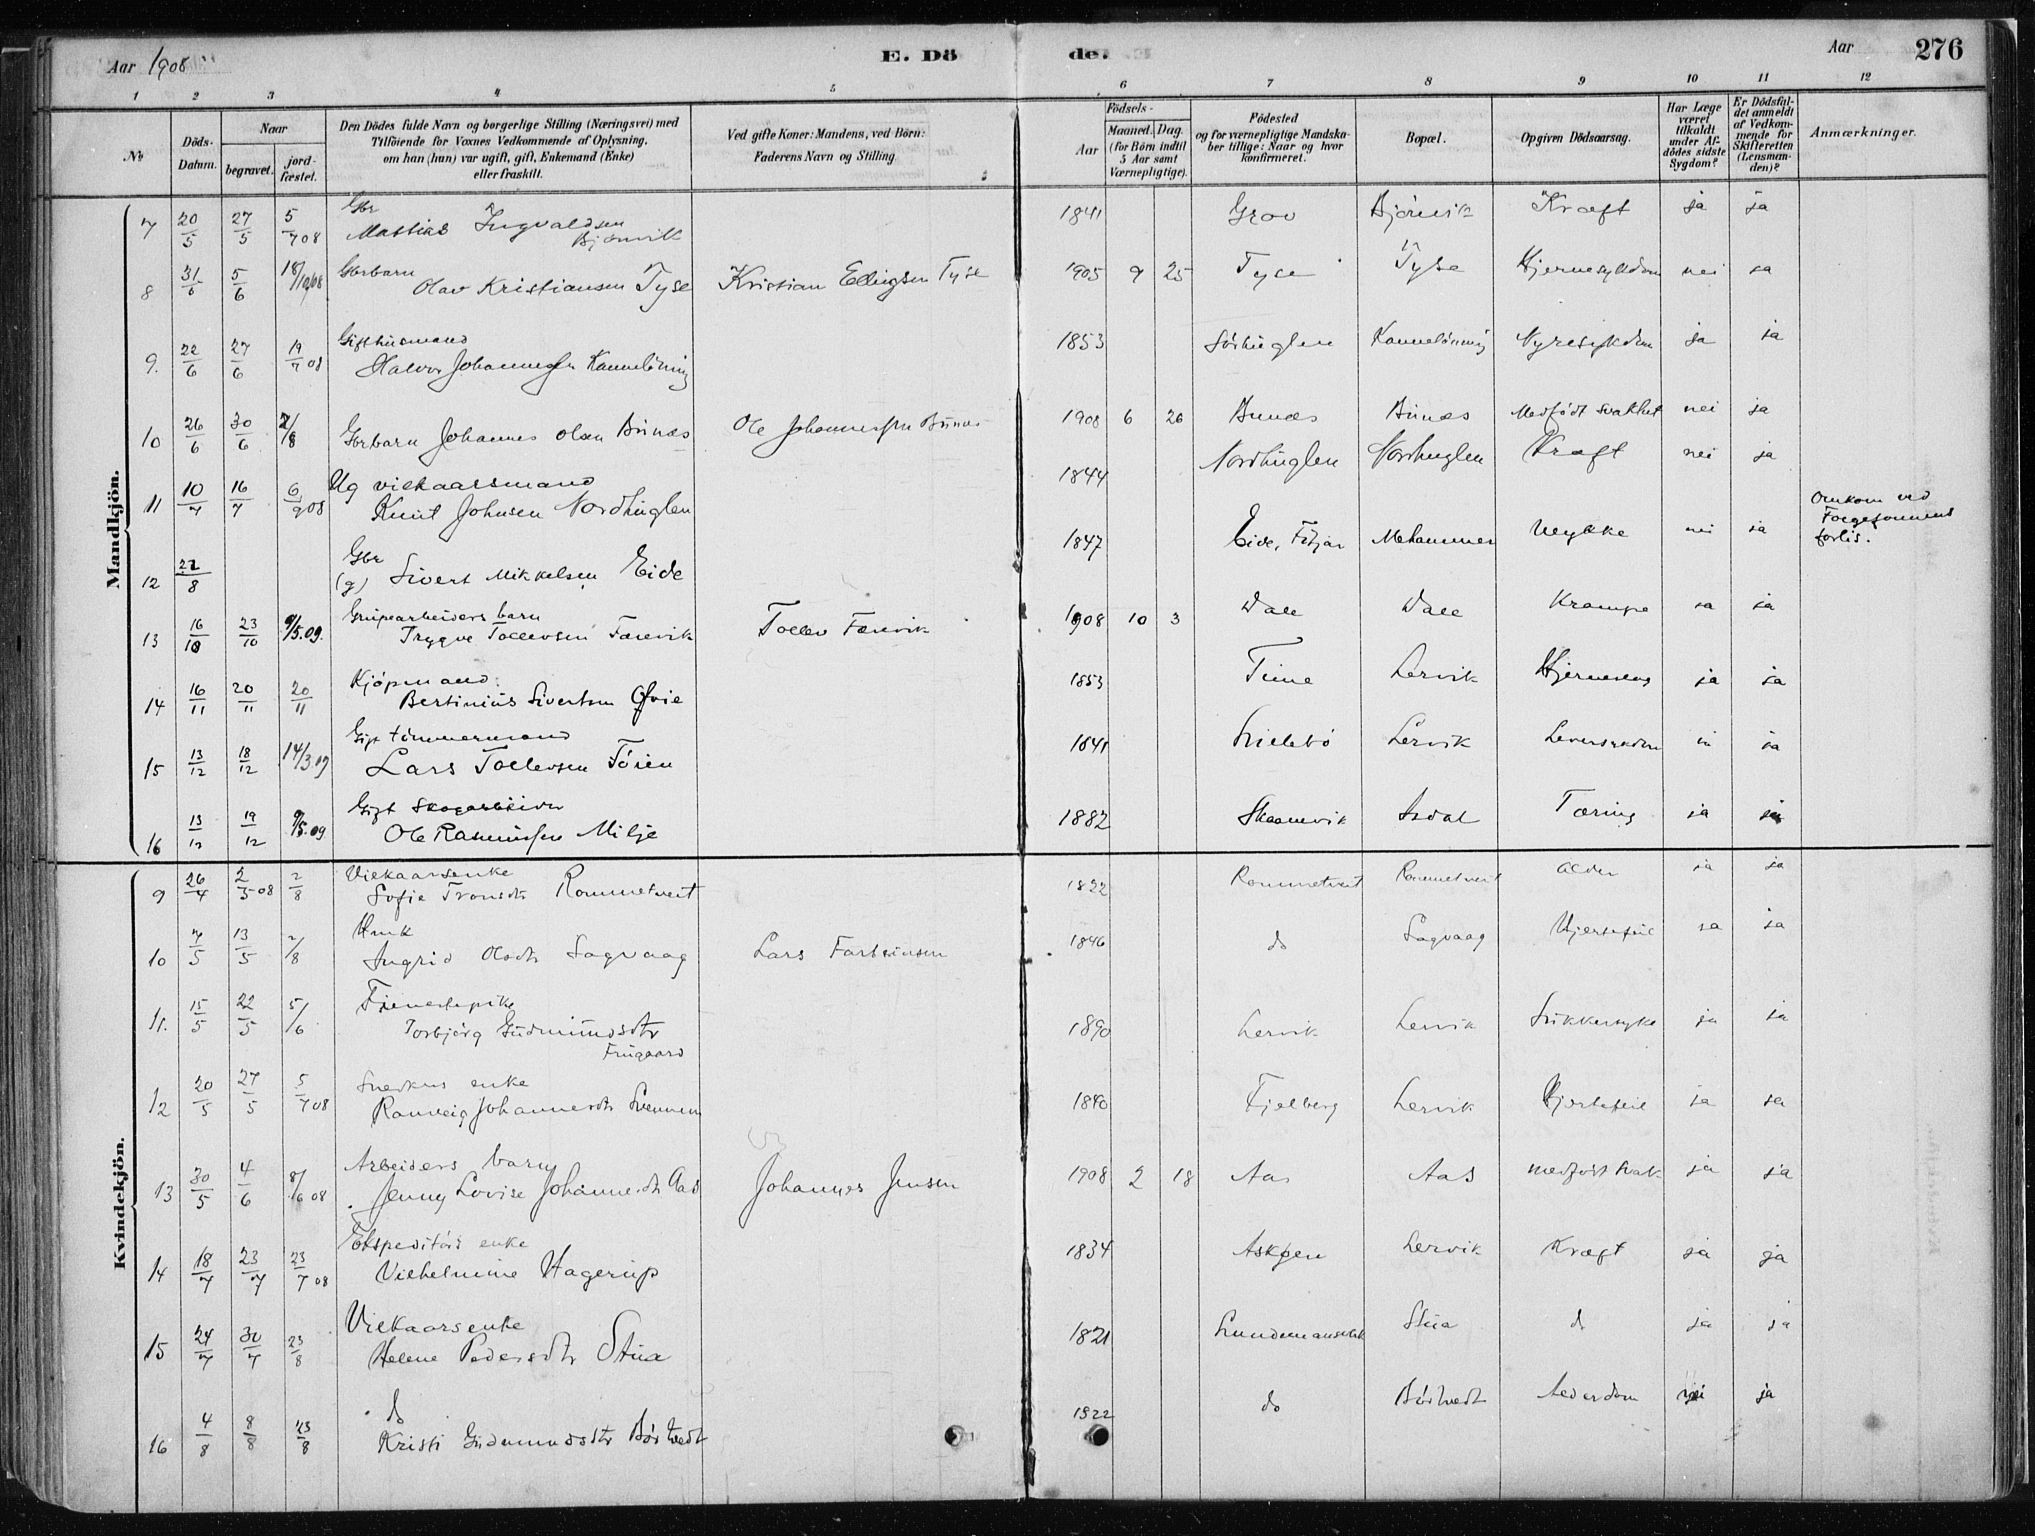 Aar 1908
E. Döde.
Aar
276
1 2 3 4 5 6 7 8 9 10 11 12
No
Döds-Datum.
Naar
begravet.
jord-fæstet.
Den Dödes fulde Navn og borgerlige Stilling (Næringsvei) med
Tilföiende for Voxnes Vedkommende af Oplysning,
om han (hun) var ugift, gift, Enkemand (Enke)
eller fraskilt.
Ved gifte Koner: Mandens, ved Börn:
Faderens Navn og Stilling
Födsels-
Aar
Maaned. Dag.
(for Börn indtil
5 Aar samt
Værnepligtige).
Födested
og for værnepligtige Mandska-
ber tillige: Naar og hvor
konfirmeret.
Bopæl.
Opgiven Dödsaarsag.
Har Læge
været
tilkaldt
under Af-
dödes sidste
Sygdom?
Er Dödsfal-
det anmeldt
af Vedkom-
mende for
Skifteretten
(Lensman-
den)?
Anmærkninger.
Mandkjön.
7 20/5 27/5 5/7 08 Gbr Mattias Ingvaldsen Bjørnvik 1841 Grov Bjørnvik Kræft ja ja
8 31/5 5/6 18/10 08 Gbrbarn Olav Kristiansen Tyse Kristian Ellingsen Tyse 1905 9 25 Tyse Tyse Hjernesykdom nei ja
9. 22/6 27/6 19/7 08 Gift husmand Halvor Johannessen Kanneløning 1853 Sørhuglen Kanneløning Nyresykdom ja ja
10 26/6 30/6 2/8 Gbrbarn Johannes Olsen Bünæs Ole Johannessen Bünæs 1908 6 26 Bunæs Bünæs Medfødt svakhet nei ja
11 10/7 16/7 6/9 08 Ug vilkaarsmand Knut Johnsen Nordhuglen 1844 Nordhuglen Nordhuglen Kræft nei ja
12 22/8 Gbr (g) Sivert Mikkelsen Eide 1847 Eide, Fitjar Mehammer Ulykke nei ja Omkom ved Folgefonnens forlis.
13 16/10 23/10 9/5.09. Grupearbeiders barn Trygve Tollevsen Farevik Tollev Farevik 1908 10 3 Dale Dale Krampe ja ja
14 16/11 20/11 20/11 Kjøpmand Bertinius Sivertsen Øvie 1853 Time Lervik ja ja
15 13/12 18/12 14/3 09 Gift tømmermand Lars Tollevsen Tøien 1841 Lillebø Lervik Leversykdom ja
16 13/12 19/12 9/5.09 Gift skogarbeider Ole Rasmussen Milje 1882 Skaanevik Isdal Tæring ja ja
Kvindekjön.
9 26/4 2/5 08 2/8 Vilkaarsenke Sofie Tronsdtr Rommetveit 1822 Rommetveit Rommetveit Alder ja ja
10 7/5 13/5 2/8 Hmk Ingrid Olsdtr Sagvaag Lars Farteinsen 1846 do Sagvaag Hjertefeil ja ja
11. 15/5 22/5 5/6 Tjenestepike Torbjörg Gudmündsdtr Frugaard 1890 Lervik Lervik Sukkersyke ja ja
12 20/5 27/5 5/7 08 Snedkers enke Ranveig Johannesdtr Svennem 1840 Fjelberg Lervik Hjertefeil ja ja
13 30/5 4/6 8/6 08 Arbeiders barn Jenny Lovise Johannesdtr Aas Johannes Jensen 1908 2 18 Aas Aas medfødt svak ja ja
14 18/7 23/7 23/7 08 Ekspeditørs enke Vilhelmine Hagerup 1834 Askøen Lervik Kræft ja ja
15 24/7 30/7 23/8 Vilkaarsenke Helene Pedersdtr Stüa 1821 Stüa do ja ja
16 4/8 8/8 23/8 do Kristi Gudmundsdtr Børtvedt 1822 do Børtvedt Alderdom nei ja